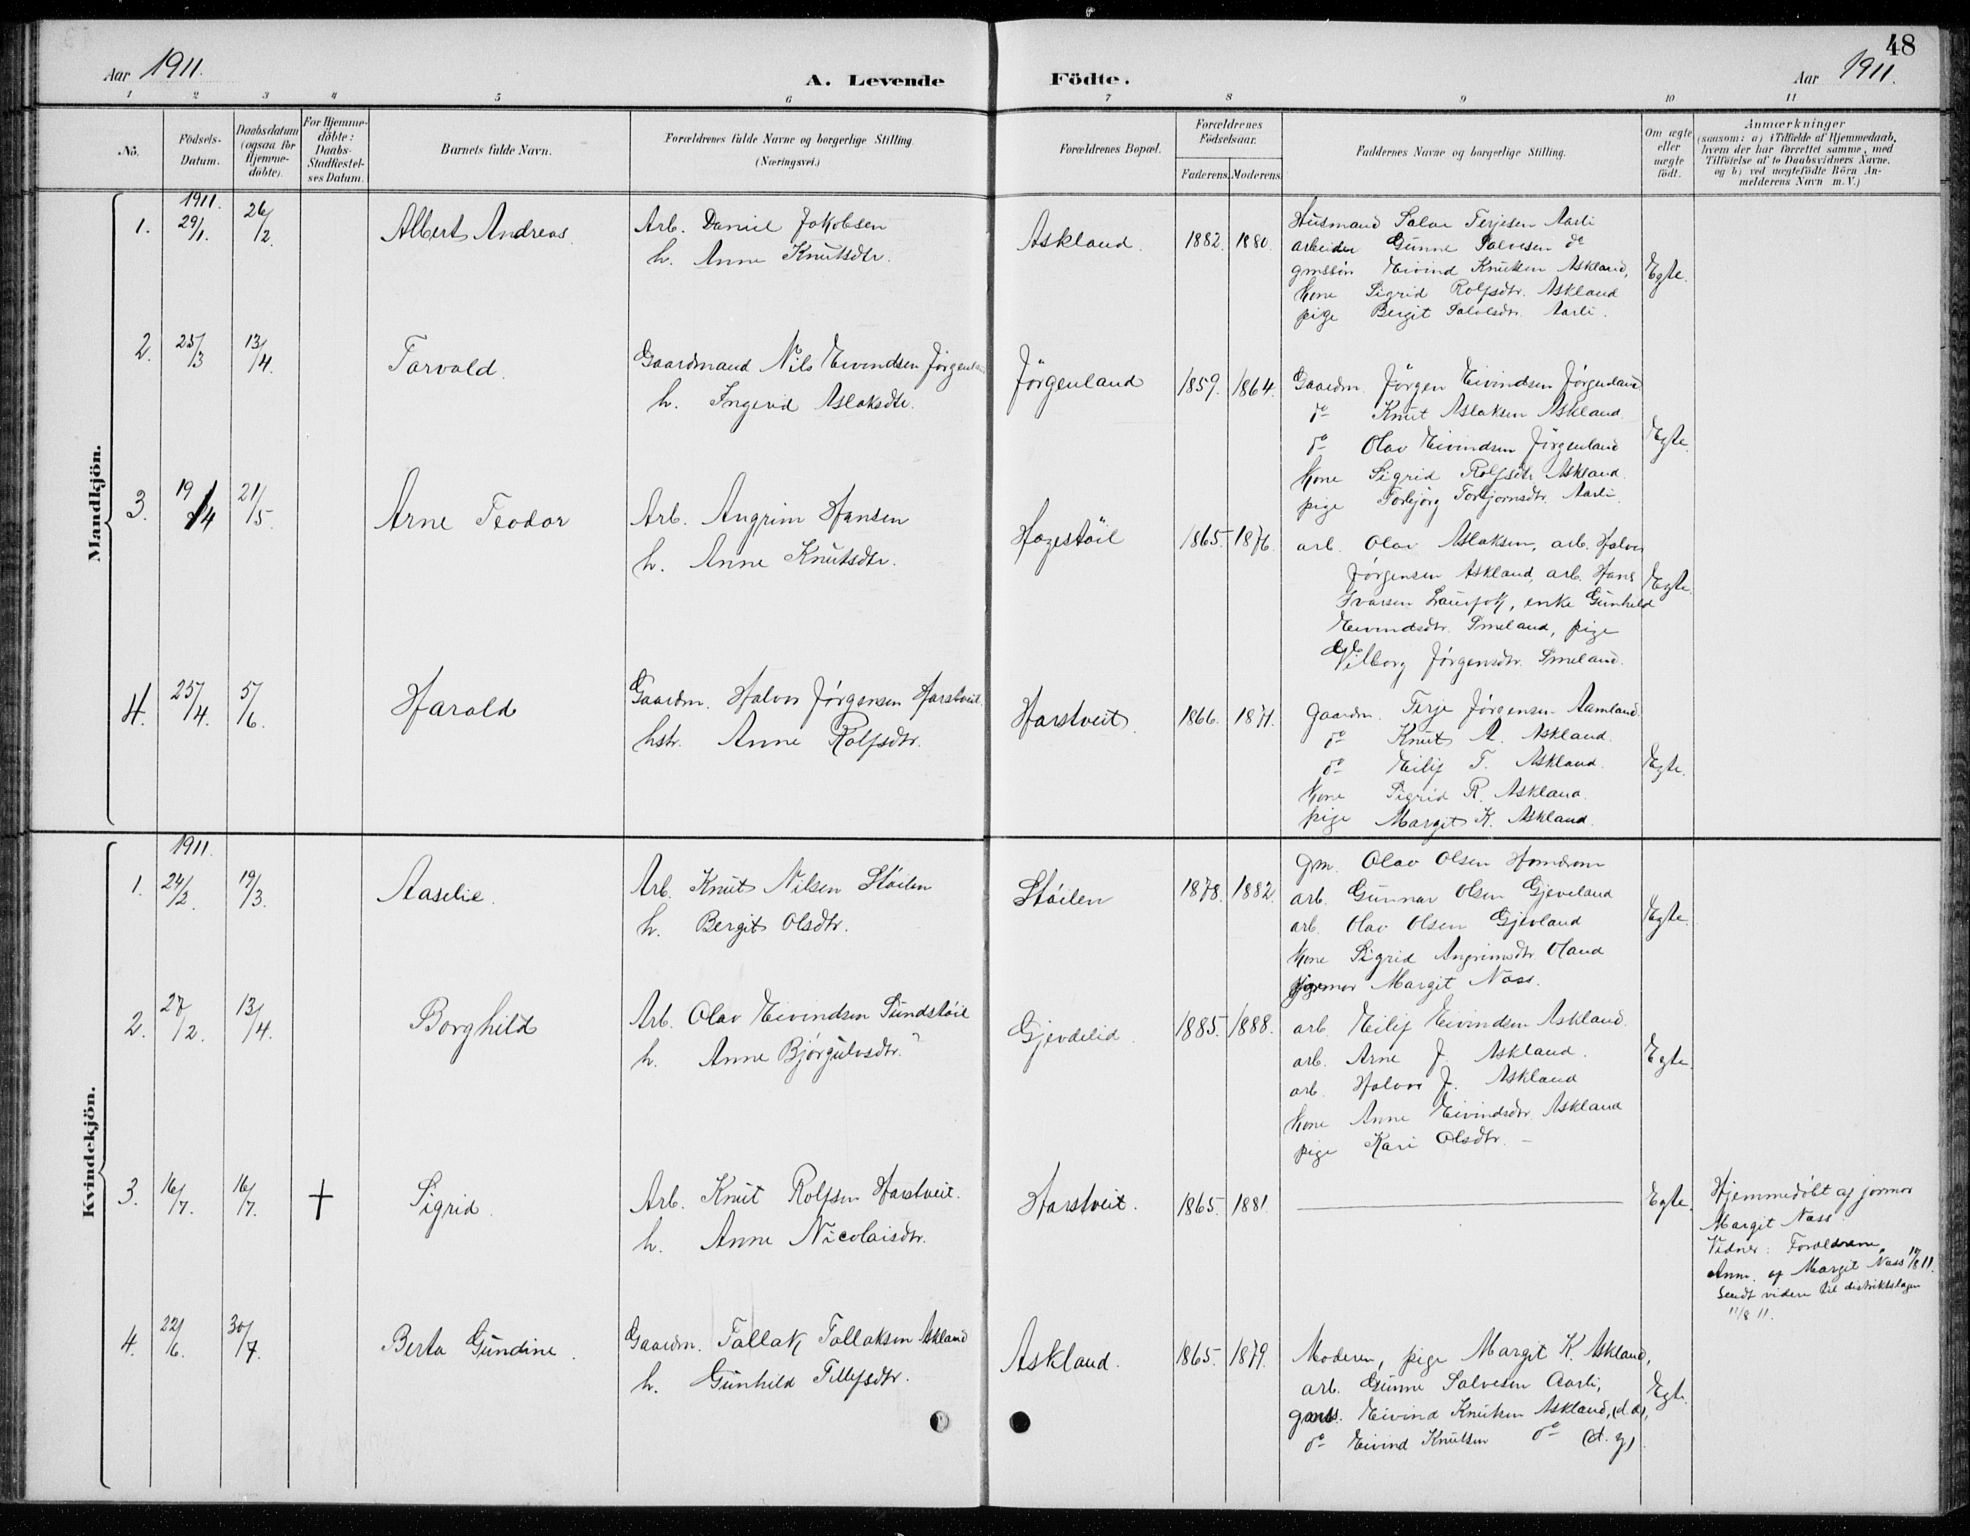 48
Aar 1911.
A. Levende Födte.
Aar 1911.
1 2 3 4 5 6 7 8 9 10 11
No.
Födsels-
Datum.
Daabsdatum
(ogsaa for
Hjemme-
døbte).
For Hjemme-
döbte:
Daabs-
Stadfæstel-
ses Datum.
Barnets fulde Navn.
Forældrenes fulde Navne og borgerlige Stilling.
(Næringsvei.)
Forældrenes Bopæl.
Forældrenes
Födselsaar.
Faderens. Moderens.
Faddernes Navne og borgerlige Stilling.
Om ægte
eller
uægte
födt.
Anmærkninger
(saasom: a) i Tilfælde af Hjemmedaab,
hvem der har forrettet samme, med
Tilföielse af to Daabsvidners Navne.
og b) ved uægtefödte Börn An-
melderens Navn m. V.)
Mandkjön.
1911.
1. 29/1. 26/2. Albert Andreas. Arb. Daniel Jakobsen
h. Anne Knutsdtr.
Askland. 1882. 1880.
Husmand Salve Terjesen Aarli
arbeider Gunne Salvesen do
gmssön Eivind Knutsen Askland,
kone Sigrid Rolfsdtr. Askland
pige Bergit Salvesdtr. Aarli.
Egte.
2. 25/3 13/4. Torvald. Gaardmand Nils Eivindsen Jørgenland
h. Ingerid Aslaksdtr.
Jörgenland 1859. 1864.
Gaardm Jörgen Eivindsen Jørgenland
do Knut Aslaksen Askland.
do Olav Eivindsen Jörgenland
kone Sigrid Rolfsdtr Askland.
pige Torbjörg Torbjornsdtr. Aarli.
Egte.
3. 19/4 21/5. Arne Teodor Arb. Angrim Hansen
h. Anne Knutsdtr.
Hagestöil 1865. 1876.
arb. Olav Aslaksen, arb. Halvor
Jørgensen Askland, arb. Hans
Ivarsen, enke Gunhild
Eivindsdtr. Smeland, pige
Vilborg Jørgensdtr. Smeland.
Egte.
4. 25/4. 5/6. Harald Gaardm. Halvor Jørgensen Harstveit.
hstr. Anne Rolfsdtr.
Harstveit. 1866. 1871.
Gaardm. Terje Jørgensen Aamland.
do Knut A. Askland.
do Eilif T. Askland.
kone Sigrid R. Askland.
pige Margit K. Askland.
Egte.
Kvindekjön.
1911.
1. 24/2. 19/3. Aaselie. Arb. Knut Nilsen Stöilen
h. Bergit Olsdtr.
Stöilen 1878. 1882.
gm. Olav Olsen Homdrom
arb. Gunnar Olsen Gjeveland
arb. Olav Olsen Gjevland
kone Sigrid Angrimsdtr Oland
jormor Margit Nass.
Egte.
2. 27/2. 13/4. Borghild Arb. Olav Eivindsen Sundstöil
h. Anne Bjørgulvsdtr.
Gjevdelid. 1885. 1888.
arb Eilif Eivindsen Askland.
arb. Arne J. Askland.
arb. Halvor J. Askland
kone Anne Eivindsdtr. Askland
pige Kari Olsdtr. –
Egte.
3. 16/7. 16/7. † Sigrid. Arb. Knut Rolfsen Harstveit.
h. Anne Nicolaisdtr.
Harstveit. 1865. 1881.
Egte.
Hjemmedöbt af jormor
Margit Nass.
Vidner: Forældrene.
Anm. af Margit Nass 10/8 11.
Sendt videre til distriktslægen
11/8 11.
4. 22/6. 30/7. Berta Gundine. Gaardm. Tallak Tallaksen Askland
h. Gunhild Tellefsdtr.
Askland. 1865. 1879.
Moderen, pige Margit K. Askland,
arb. Gunne Salvesen Aarli,
gmss. Eivind Knutsen Askland, (d.æ),
do Eivind Knutsen do (d.y).
Egte.